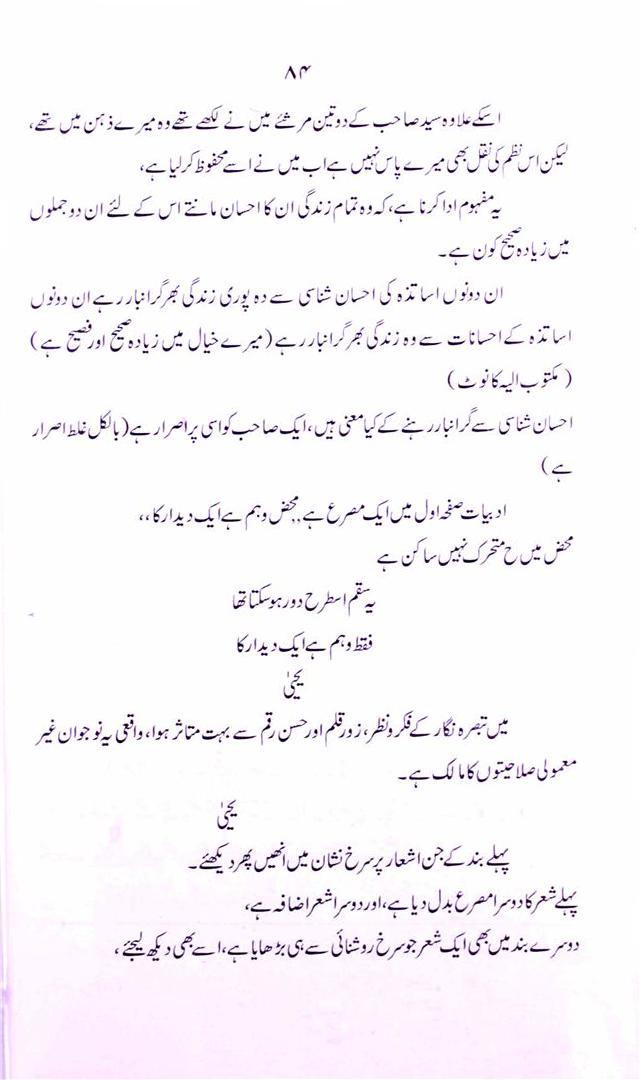 ۸۴
اسکے علاوہ سید صاحب کے دو تین مرشئے میں نے لکھے تھے وہ میرے ذہن میں تھے،
لیکن اس نظم کی نقل بھی میرے پاس نہیں ہے اب میں نے اسے محفوظ کر لیا ہے،
یہ مفہوم ادا کرنا ہے، کہ وہ تمام زندگی ان کا احسان مانتے اس کے لئے ان دو جملوں
میں زیادہ صحیح کون ہے۔
ان دونوں اساتذہ کی احسان شناسی سے دہ پوری زندگی بھر گرانبار رہے ان دونوں
اساتذہ کے احسانات سے وہ زندگی بھر گرانبار رہے (میرے خیال میں زیادہ صحیح اور فصیح ہے)
(مکتوب الیہ کا نوٹ)
احسان شناسی سے گرانبار رہنے کے کیا معنی ہیں، ایک صاحب کو اسی پر اصرار ہے (بالکل غلط اصرار
ہے)
ادبیات صفحہ اول میں ایک مصرع ہے ,,محض وہم ہے ایک دیدار کا،،
محض میں ح متحرک نہیں ساکن ہے
یہ سقم اسطرح دور ہو سکتا تھا
فقط وہم ہے ایک دیدار کا
یحیٰ
میں تبصرہ نگار کے فکر و نظر، زور قلم اور حسن رقم سے بہت متاثر ہوا، واقعی یہ نوجوان غیر
معمولی صلاحیتوں کا مالک ہے۔
یحیٰ
پہلے بند کے جن اشعار پر سرخ نشان میں انھیں پھر دیکھئے۔
پہلے شعر کا دوسرا مصرع بدل دیا ہے، اور دوسرا شعر اضافہ ہے،
دوسرے بند میں بھی ایک شعر جو سرخ روشنائی سے ہی بڑھایا ہے، اسے بھی دیکھ لیجئے،